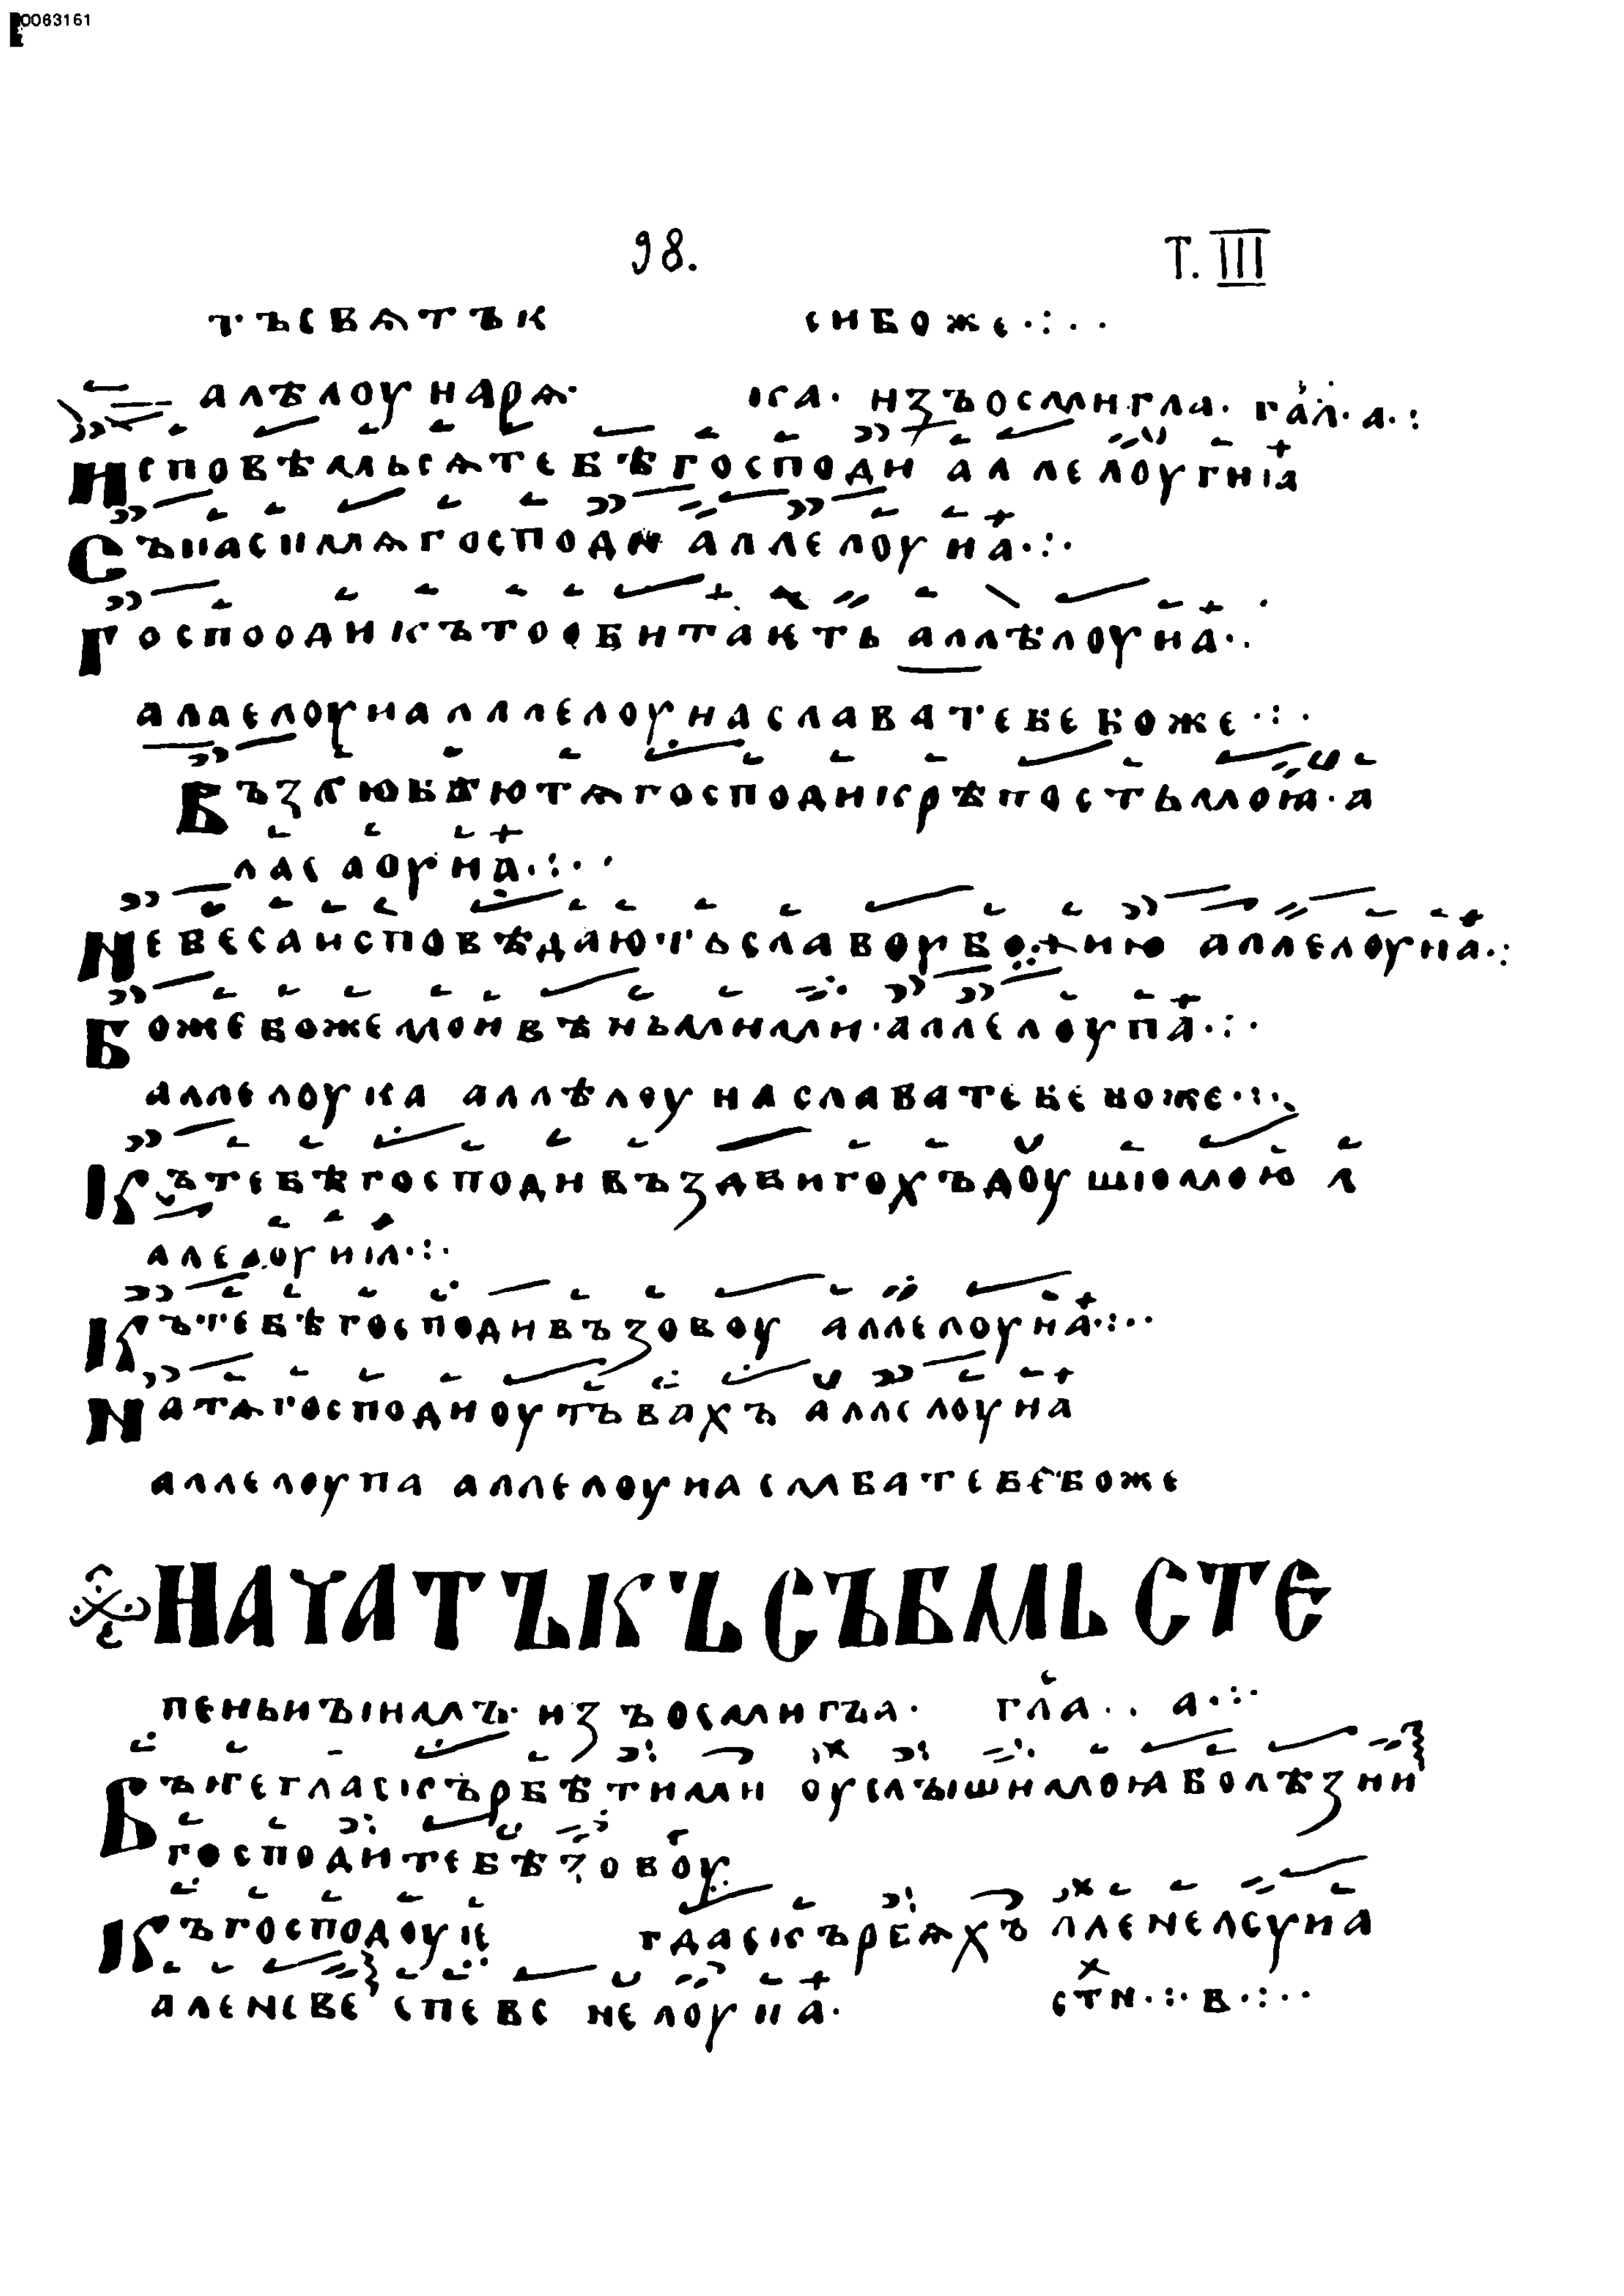 0063161
98. Т. III
тъсвѧтък сибоже·:··
алѣлоуиарѧ· іка· изъосмигла· гал·а·:
исповѣмьсѧтебѣгосподи аллелоугиіа
Сънасимѧгосподи аллелоуиа·:·
Госпоодикътообитакть аллѣлоуиа··
аллелоуиаллелоуиаславатебебоже·:·
Възлюбѣютѧгосподикрѣпостьмоꙗ·а
Небесаисповѣдаютьславоубожию аллелоуиа·:
Божебожемоивѣньмими·аллелоупа·:·
аллелоука аллѣлоу наславатебебоже·:·
Кътебѣгосподивъздвигохъдоушюмою л
алелоуиіл·:·
Кътебѣгосподивъзовоу аллелоуиа·:··
Натѧгосподиоупъвахъ аллелоуиа
аллелоупа аллелоуиа тебебоже
НАЧАТЪКЪСЪБМЬСТЕ
пеньиъінмъ·изъосмигъа· гла·· а·:·
оуслъішимоꙗболѣзни
господитебѣзовоу
Къгосподоук
аленеве спеве нелоупа· сти·:·в·:··